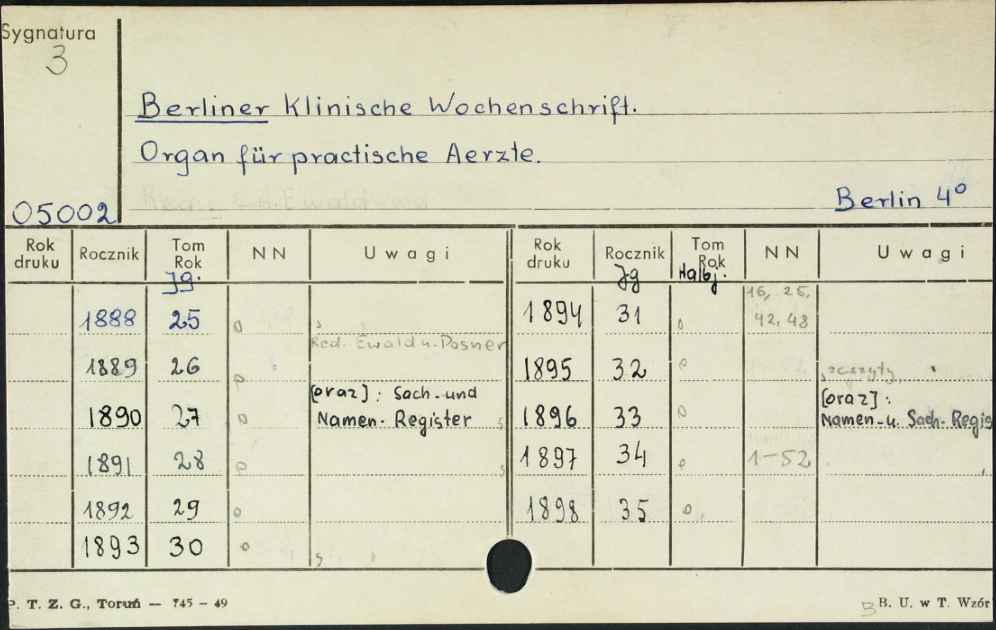 Sygnatura
3
Berliner Klinische Wochenschrift.
Organ für practische Aerzte.
05002
Berlin 4º
Rok druku Rocznik Tom Rok NN Uwagi Rok druku Rocznik Tom Rok NN Uwagi
Jg. Jg Halbj.
1888 25
Red. Ewald u. Posner
1889 26
1890 27 [oraz]: Sach- und
Namen- Register
1891 28
1892 29
1893 30
1894 31 16, 26,
42, 48
1895 32 zeszyty
1896 33 [oraz]:
Namen- u. Sach- Regis
1897 34 1-52
1898 35
P. T. Z. G., Toruń — 745 - 49
B. U. w T. Wzór